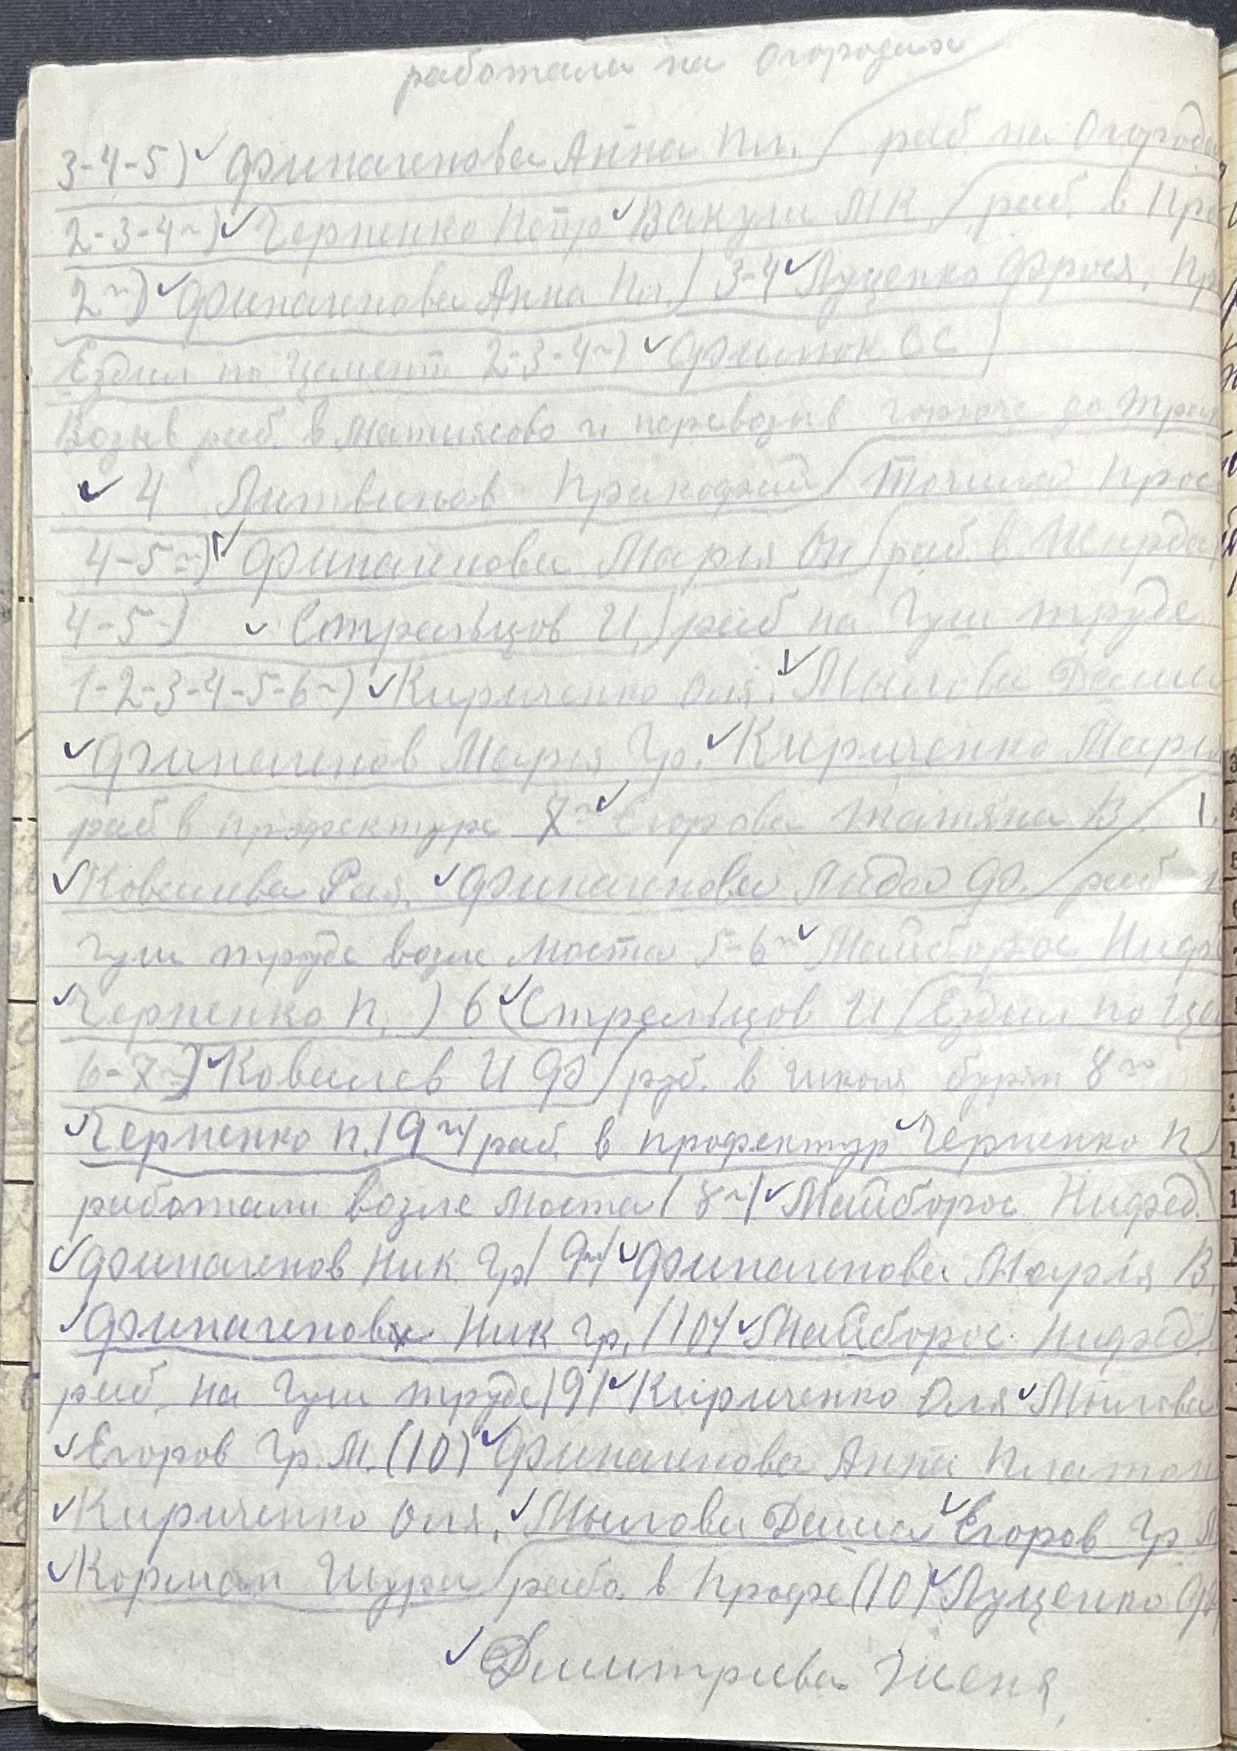 работала на Огородах
3-4-5) ✓ Финагенова Анна Пл. / раб на Огорода
2-3-4~) ✓ Черненко Петро ✓ Вакули МК / раб. в Пре
2~) ✓ Финагенова Анна Пл. / 3-4 ✓ Луценко Фрося, Пр
Ездил по Цемент 2-3-4~) ✓ Филипюк СС /
раб. в и перевозыв горюче до
✓ 4 Литвинов / Точили
4-5~) ✓ Финагенова Мария Он / раб. в
4-5-) ✓ Стрельцов И, / раб на Гуш труде
1-2-3-4-5-6~) ✓ Кириченко Оля. ✓ Мылова Даша
✓ Финагенов Мария Гр. ✓ Кириченко Мария
раб в префектуре 7~ ✓ Егорова татяна В / 1.
✓ Ковалева Рая. ✓ Финагенова Лида Ф. / раб
Гуш труде возле моста 5-6~ ✓ Майборос Нифед
✓ Черненко П. ) 6 ✓ Стрельцов И / Ездил по Це
6-7~) ✓ Ковалев И Ф / раб. в школя 8~
✓ Черненко П. / 9~ / раб. в профектур ✓ Черненко П
работали возле моста / 8~ / ✓ Майборос. Нифед.
✓ Финагенов Ник Гр / 9~ / ✓ Финагенова Мария В.
✓ Финагенов Ник Гр. / 10 / ✓ Майборос. Нифед
раб. на Гуш труде / 9 / ✓ Кириченко Оля ✓ Мылова
✓ Егоров Гр. М. (10) ✓ Финагенова Анна Платон
✓ Кириченко Оля, ✓ Мылова Даша ✓ Егоров Гр М
✓ Корман Шура / рабо. в Префе (10) ✓ Луценко Ф
✓ Димитрива Женя